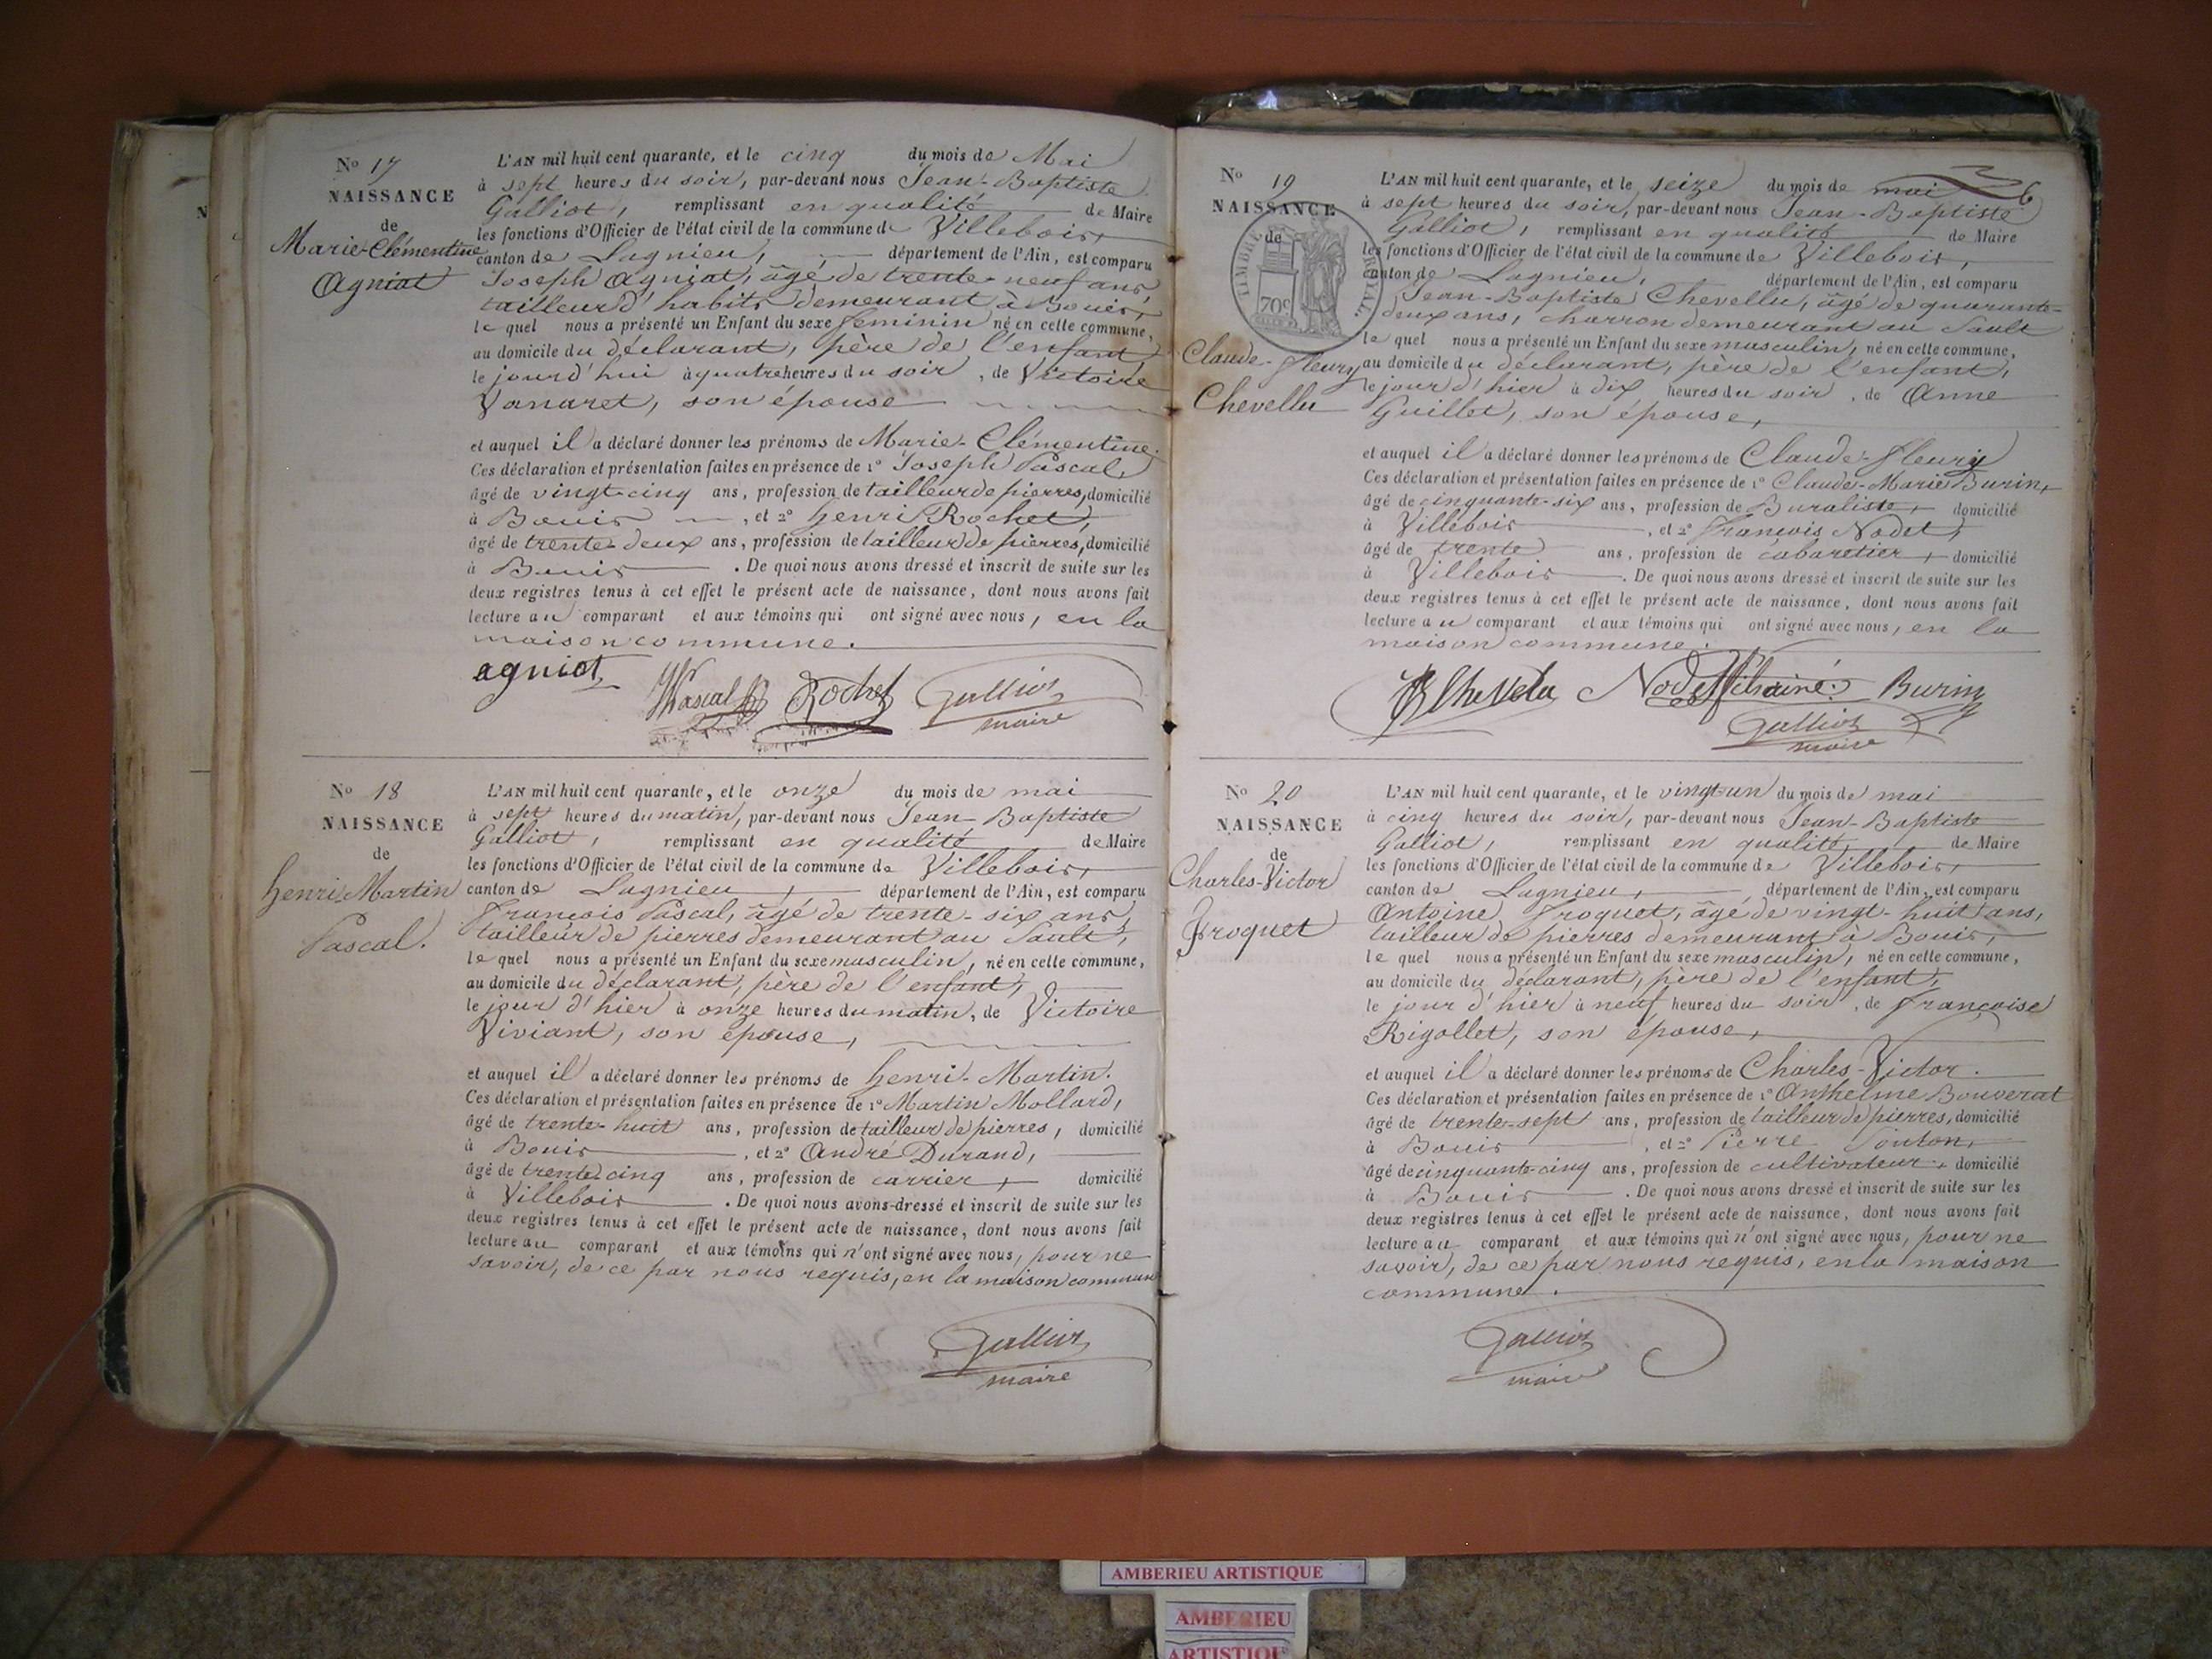 No 17
NAISSANCE
de
Marie-Clémentine
Agniat
L'AN mil huit cent quarante, et le cinq du mois de Mai
à sept heures du soir, par-devant nous Jean-Baptiste
Galliot, remplissant en qualité de Maire
les fonctions d'Officier de l'état civil de la commune de Villebois,
canton de Lagnieu, département de l'Ain, est comparu
Joseph Agniat, âgé de trente-neuf ans,
tailleur d'habits demeurant à Bouis,
lequel nous a présenté un Enfant du sexe féminin né en cette commune,
au domicile du déclarant, père de l'enfant,
le jourd'hui à quatre heures du soir, de Victoire
Vanaret, son épouse
et auquel il a déclaré donner les prénoms de Marie-Clémentine.
Ces déclaration et présentation faites en présence de 1º Joseph Pascal,
âgé de vingt-cinq ans, profession de tailleur de pierres, domicilié
à Bouis, et 2º henri Rochet,
âgé de trente-deux ans, profession de tailleur de pierres, domicilié
à Bouis. De quoi nous avons dressé et inscrit de suite sur les
deux registres tenus à cet effet le présent acte de naissance, dont nous avons fait
lecture au comparant et aux témoins qui ont signé avec nous, en la
maison commune.
agniat Pascal Rochet Galliot
maire
No 18
NAISSANCE
de
henri-Martin
Pascal.
L'AN mil huit cent quarante, et le onze du mois de mai
à sept heures du matin, par-devant nous Jean-Baptiste
Galliot, remplissant en qualité de Maire
les fonctions d'Officier de l'état civil de la commune de Villebois,
canton de Lagnieu, département de l'Ain, est comparu
François Pascal, âgé de trente-six ans,
tailleur de pierres demeurant au Sault,
lequel nous a présenté un Enfant du sexe masculin, né en cette commune,
au domicile du déclarant, père de l'enfant,
le jour d'hier à onze heures du matin, de Victoire
Viviant, son épouse,
et auquel il a déclaré donner les prénoms de henri-Martin.
Ces déclaration et présentation faites en présence de 1º Martin Mollard,
âgé de trente-huit ans, profession de tailleur de pierres, domicilié
à Bouis, et 2º André Durand,
âgé de trente-cinq ans, profession de carrier, domicilié
à Villebois. De quoi nous avons dressé et inscrit de suite sur les
deux registres tenus à cet effet le présent acte de naissance, dont nous avons fait
lecture au comparant et aux témoins qui n'ont signé avec nous, pour ne
savoir, de ce par nous requis, en la maison commune
Galliot
maire
6
No 19
NAISSANCE
de
TIMBRE ROYAL
70c
Claude-fleury
Chevellu
L'AN mil huit cent quarante, et le seize du mois de mai
à sept heures du soir, par-devant nous Jean-Baptiste
Galliot, remplissant en qualité de Maire
les fonctions d'Officier de l'état civil de la commune de Villebois,
canton de Lagnieu, département de l'Ain, est comparu
Jean-Baptiste Chevellu, âgé de quarante-
deux ans, charron demeurant au Sault
lequel nous a présenté un Enfant du sexe masculin, né en cette commune,
au domicile du déclarant, père de l'enfant,
le jour d'hier à dix heures du soir, de Anne
Guillet, son épouse,
et auquel il a déclaré donner les prénoms de Claude-fleury
Ces déclaration et présentation faites en présence de 1º Claude-Marie Burin,
âgé de cinquante-six ans, profession de Buraliste, domicilié
à Villebois, et 2º françois Nodet,
âgé de trente ans, profession de cabaretier, domicilié
à Villebois. De quoi nous avons dressé et inscrit de suite sur les
deux registres tenus à cet effet le présent acte de naissance, dont nous avons fait
lecture au comparant et aux témoins qui ont signé avec nous, en la
maison commune.
Chevelu Nodet fils ainé Burin
Galliot
maire
No 20
NAISSANCE
de
Charles-Victor
froquet
L'AN mil huit cent quarante, et le vingt-un du mois de mai
à cinq heures du soir, par-devant nous Jean-Baptiste
Galliot, remplissant en qualité de Maire
les fonctions d'Officier de l'état civil de la commune de Villebois,
canton de Lagnieu, département de l'Ain, est comparu
Antoine froquet, âgé de vingt-huit ans,
tailleur de pierres demeurant à Bouis,
lequel nous a présenté un Enfant du sexe masculin, né en cette commune,
au domicile du déclarant, père de l'enfant,
le jour d'hier à neuf heures du soir, de françoise
Rigollet, son épouse,
et auquel il a déclaré donner les prénoms de Charles-Victor.
Ces déclaration et présentation faites en présence de 1º Anthelme Bouverat
âgé de trente-sept ans, profession de tailleur de pierres, domicilié
à Bouis, et 2º Pierre Ponton,
âgé de cinquante-cinq ans, profession de cultivateur, domicilié
à Bouis. De quoi nous avons dressé et inscrit de suite sur les
deux registres tenus à cet effet le présent acte de naissance, dont nous avons fait
lecture au comparant et aux témoins qui n'ont signé avec nous, pour ne
savoir, de ce par nous requis, en la maison
commune.
Galliot
maire
AMBERIEU ARTISTIQUE
AMBERIEU
ARTISTIQUE